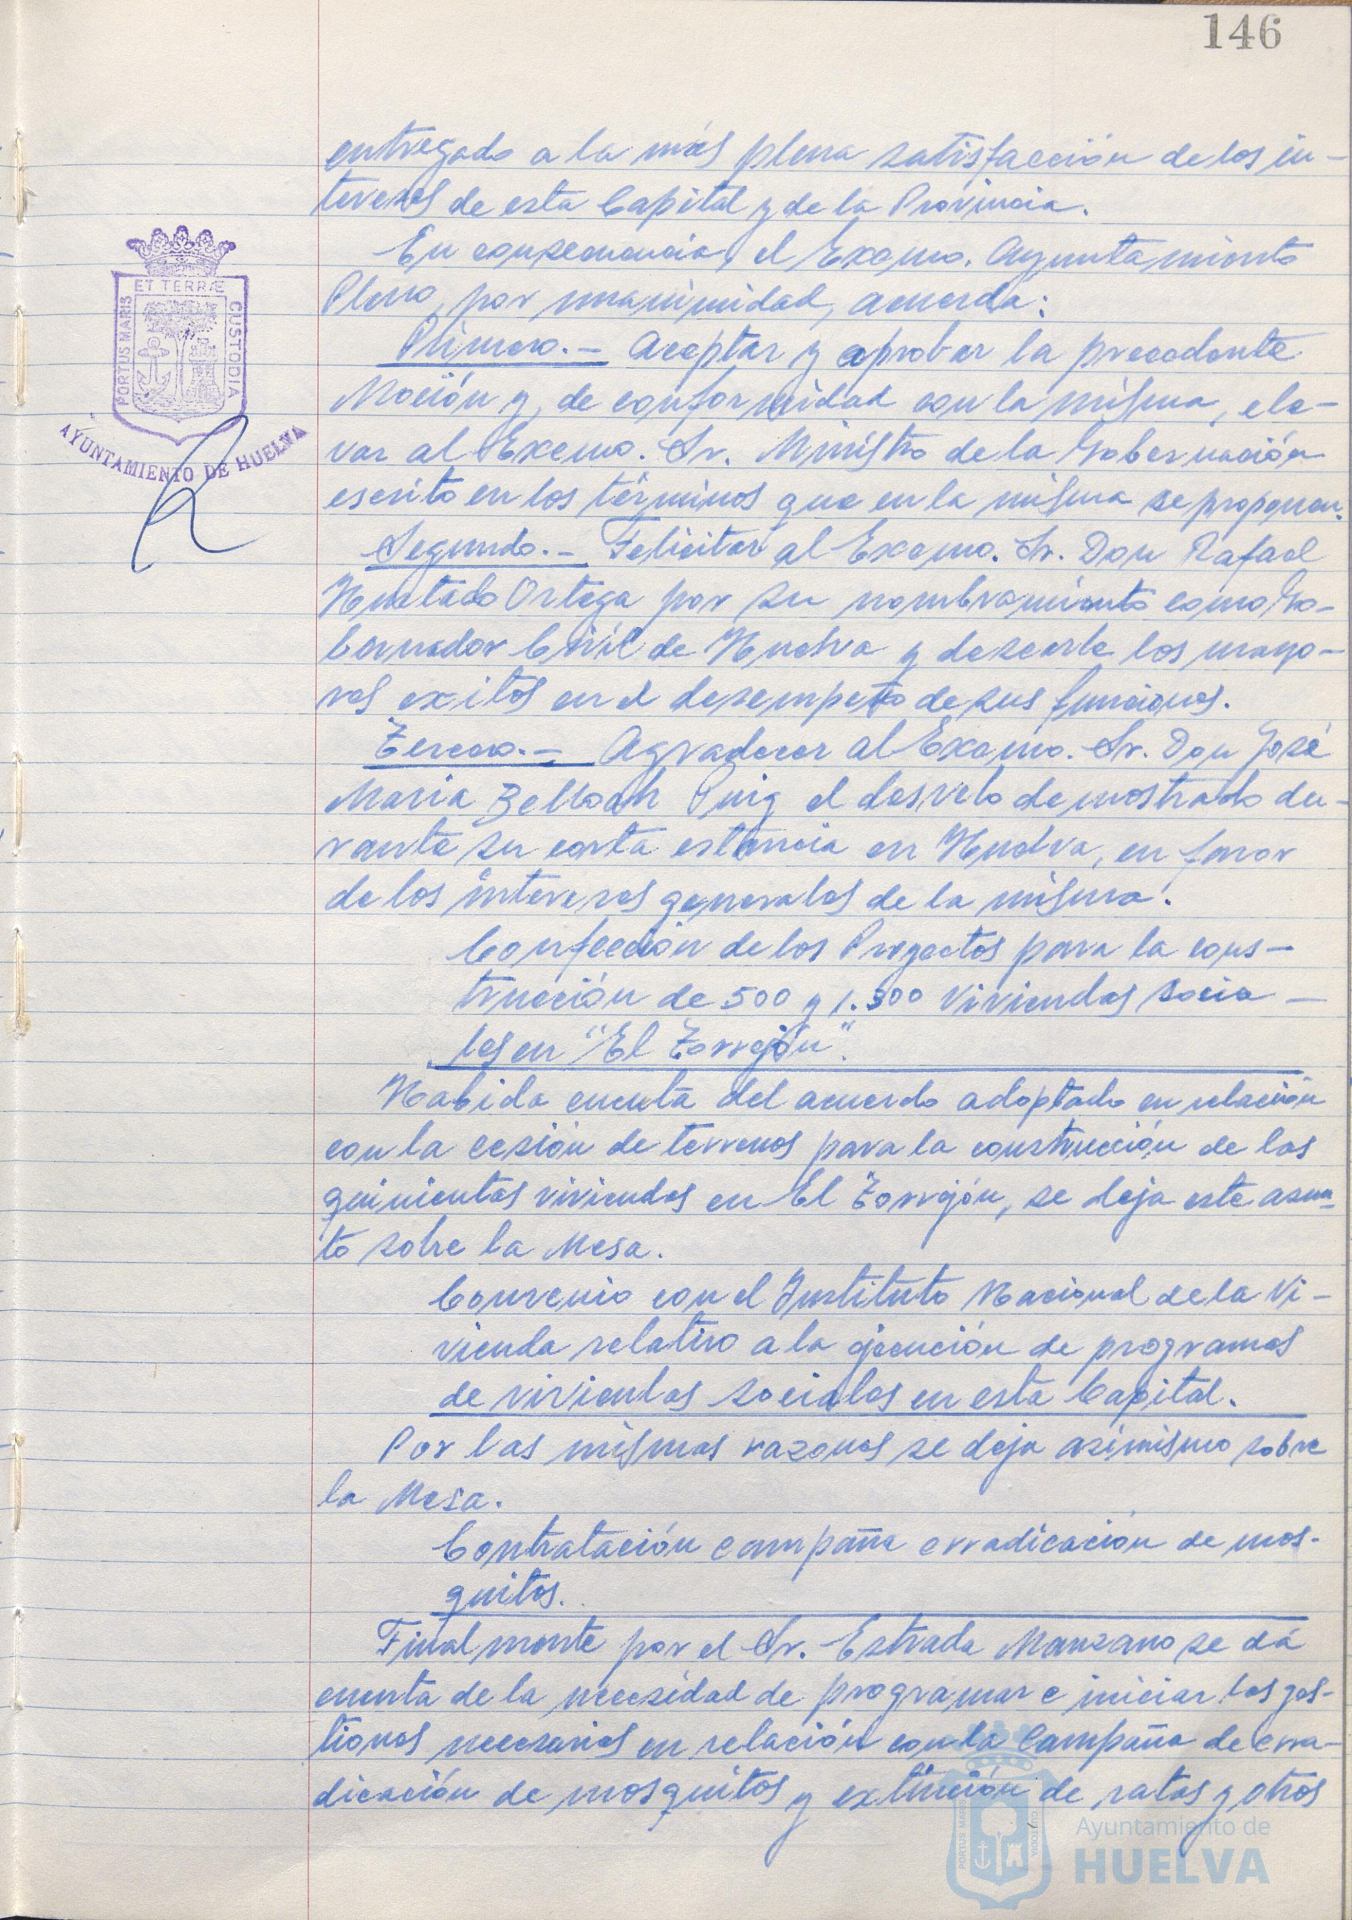 146
entregado a la más plena satisfacción de los in-
tereses de esta Capital y de la Provincia.
En consecuencia, el Excmo. Ayuntamiento
Pleno, por unanimidad, acuerda:
Primero.- Aceptar y aprobar la precedente
Moción y, de conformidad con la misma, ele-
var al Excmo. Sr. Ministro de la Gobernación
escrito en los términos que en la misma se proponen.
Segundo.- Felicitar al Excmo. Sr. Don Rafael
Hurtado Ortega por su nombramiento como Go-
bernador Civil de Huelva y desearle los mayo-
res exitos en el desempeño de sus funciones.
Tercero.- Agradecer al Excmo. Sr. Don José
Maria Belloch Puig el desvelo demostrado du-
rante su corta estancia en Huelva, en favor
de los intereses generales de la misma.
Confección de los Proyectos para la cons-
trucción de 500 y 1.500 viviendas socia-
les en "El Torrejón".
Habida cuenta del acuerdo adoptado en relación
con la cesión de terrenos para la construcción de las
quinientas viviendas en El Torrejón, se deja este asun-
to sobre la Mesa.
Convenio con el Instituto Nacional de la Vi-
vienda relativo a la ejecución de programas
de viviendas sociales en esta Capital.
Por las mismas razones se deja asimismo sobre
la Mesa.
Contratación campaña erradicación de mos-
quitos.
Finalmente por el Sr. Estrada Manzano se dá
cuenta de la necesidad de programar e iniciar las ges-
tiones necesarias en relación con la Campaña de erra-
dicación de mosquitos y extinción de ratas y otros
PORTUS MARIS ET TERRÆ CUSTODIA
AYUNTAMIENTO DE HUELVA
PORTUS MARIS
CUSTODIA
Ayuntamiento de
HUELVA